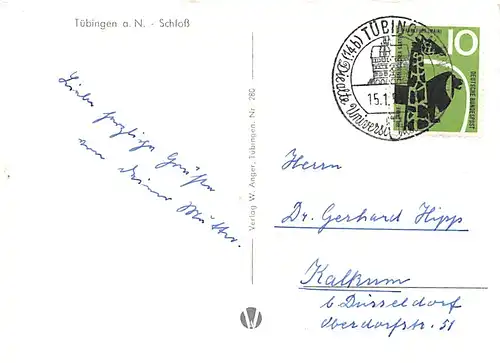 Tübingen a. N. - Schloß
Liebe herzliche Grüße
von deiner Mutter.
Verlag W. Anger, Tübingen, Nr. 280
(14b) TÜBING
15.1.5
Die alte Universit
10
DEUTSCHE BUNDESPOST
Herrn
Dr. Gerhard Hipp
Kalkum
b. Düsseldorf
Oberdorfstr. 51